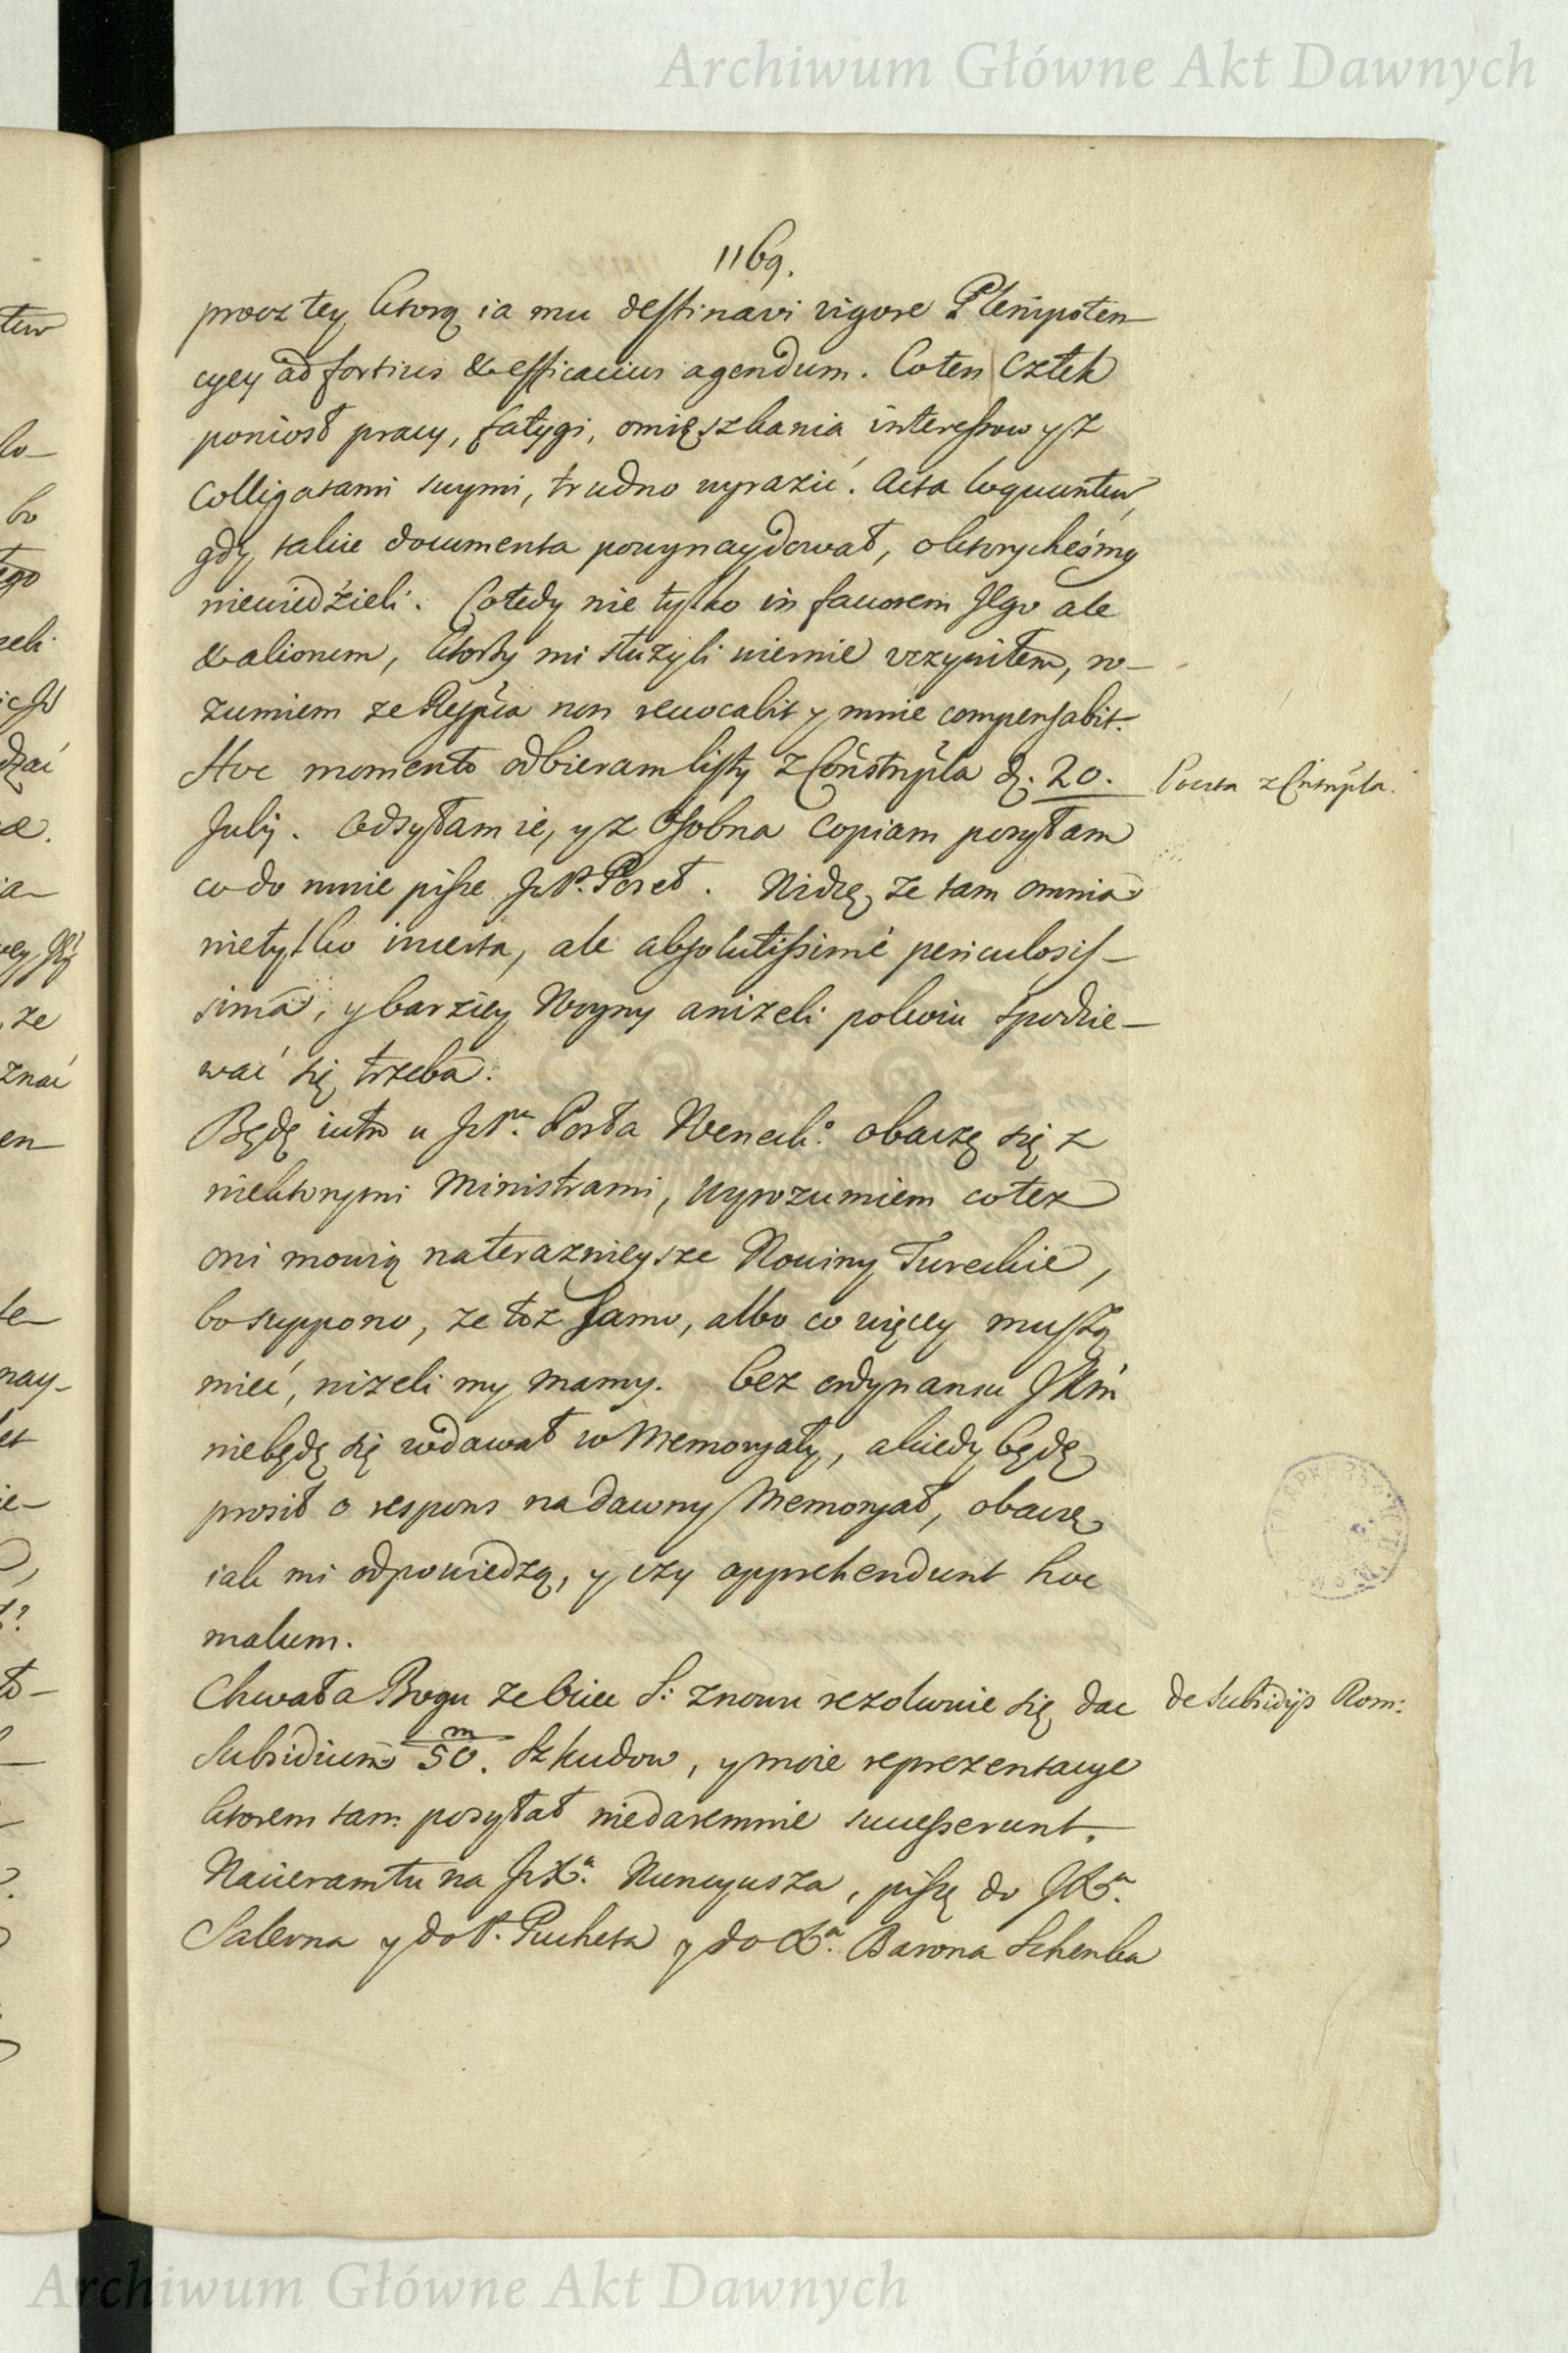 Archiwum Główne Akt Dawnych
1169.
procz tey ktorą ia mu destinavi vigore Plenipoten
cyey ad fortius & efficacius agendum. Co ten Człek
poniosł pracy, fatygi, omięszkania interessow y z
Colligatami swymi, trudno wyrazić. Acta loquuntur,
gdy takie documenta powynaydował, o ktorycheśmy
niewiedzieli. Co tedy nie tylko in favorem Jego ale
& aliorum, ktorzy mi służyli wiernie uczyniłem, ro-
zumiem ze Respca non revocabit y mnie compensabit.
Hoc momento odbieram listy z Constnpla d. 20.
Poczta z Cnstnpla.
July. Odsyłam ie, y z osobna Copiam posyłam
co do mnie pisze JP. Poseł. Widzę, ze tam omnia
nietylko incerta, ale absolutissimè periculosis-
sima, y barziey Woyny anizeli pokoiu spodzie-
wać się trzeba.
Będę iutro u JPna. Posła Weneck: obaczę się z
niektorymi Ministrami, wyrozumiem co tez
oni mowią na teraznieysze Nowiny Tureckie,
bo suppono, ze toz samo, albo co więcey muszą
mieć, nizeli my mamy. bez ordynansu JKM
niebędę się wdawał w Memoryały, a kiedy będę
prosił o respons na dawny Memoryał, obaczę
iak mi odpowiedzą, y czy apprehendunt hoc
malum.
Chwała Bogu ze Ociec S: znowu rezolwuie się dac
de Subsidijs Rom:
Subsidium 50.m Szkudow, y moie reprezentacye
ktorem tam posyłał niedaremnie successerunt.
Nacieram tu na JXa. Nuncyusza, piszę do JXa.
Salerna y do P. Pucheta y do Xa. Barona Schenka
Archiwum Główne Akt Dawnych